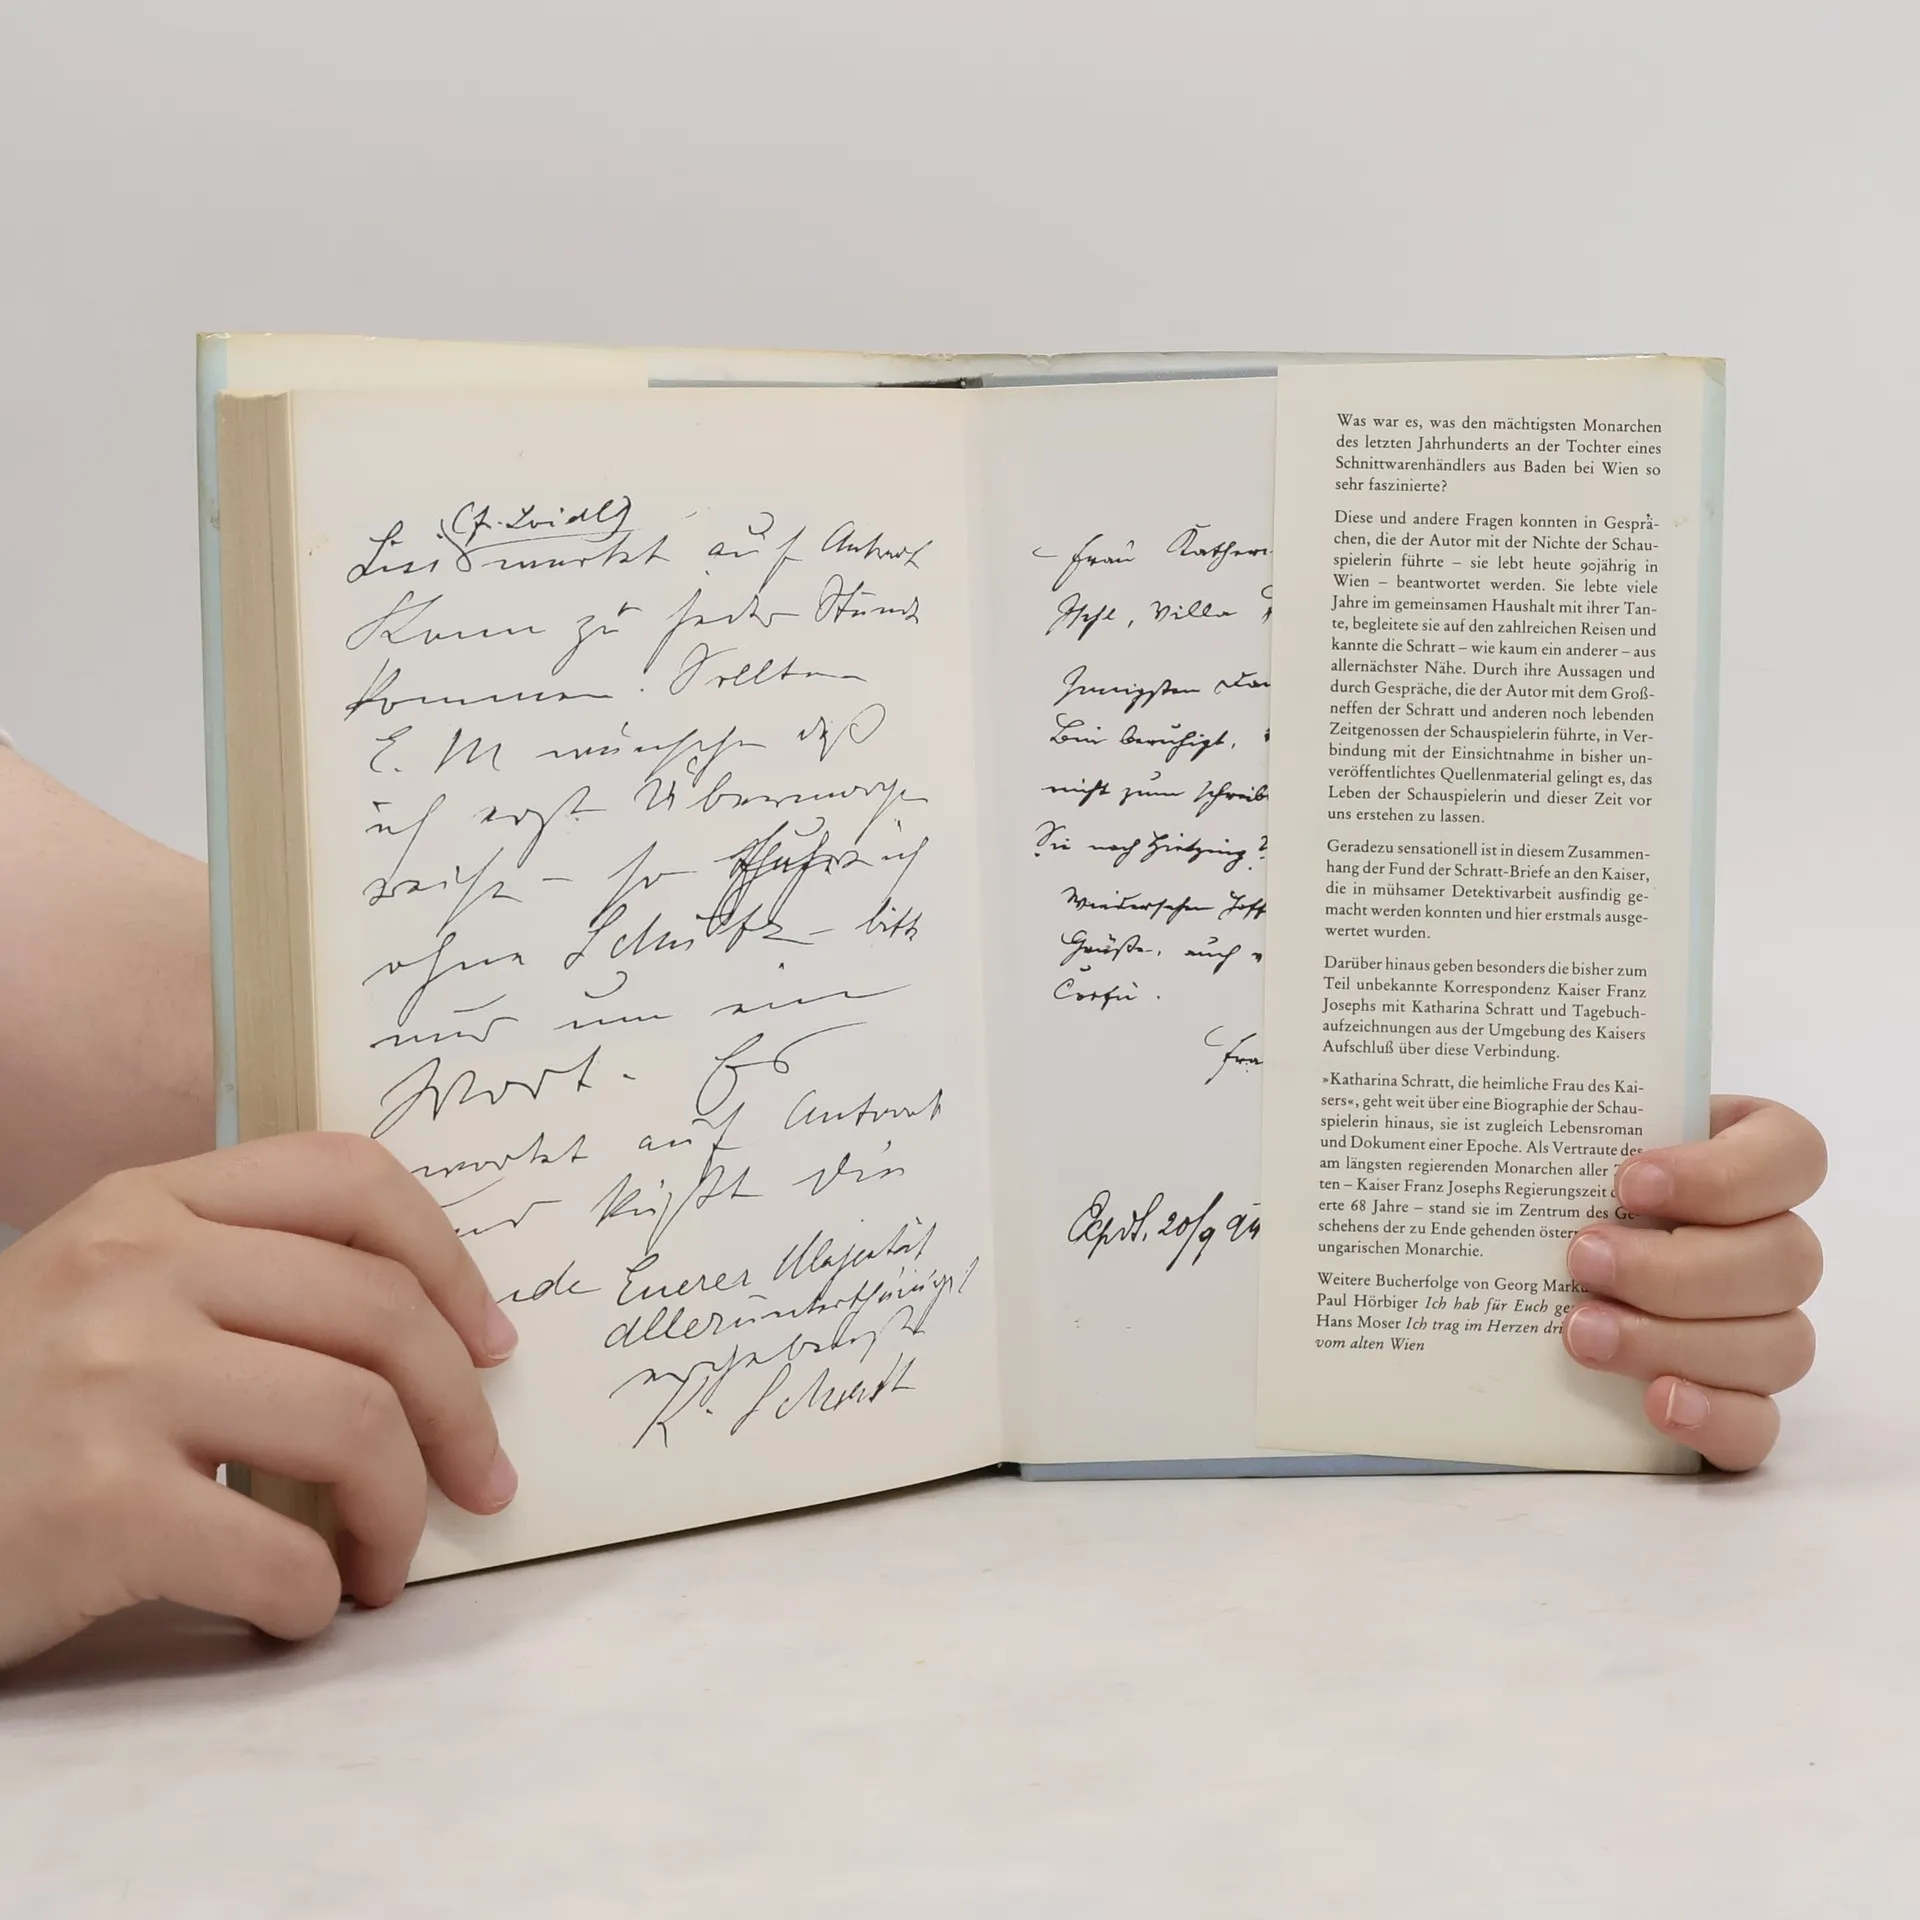 (Fr. Loidl)
Lisi wartet auf Antwort
Kann zu jeder Stunde
kommen. Sollten
E. M wünschen daß
ich erst Übermorgen
reise – so ich
ohne – bitte
nur um ein
Wort. Es
wartet auf Antwort
und küßt die
Euerer Majestät
alleruntertänigst
ergebenste
K. Schratt
Frau
Ischl, Villa
Innigsten
Bin beruhigt,
nicht zum
Sie nach Hietzing?
Wiedersehen
Grüße, auch
Corfu.
Expdt. 20/9
Was war es, was den mächtigsten Monarchen
des letzten Jahrhunderts an der Tochter eines
Schnittwarenhändlers aus Baden bei Wien so
sehr faszinierte?
Diese und andere Fragen konnten in Gesprä-
chen, die der Autor mit der Nichte der Schau-
spielerin führte – sie lebt heute 90jährig in
Wien – beantwortet werden. Sie lebte viele
Jahre im gemeinsamen Haushalt mit ihrer Tan-
te, begleitete sie auf den zahlreichen Reisen und
kannte die Schratt – wie kaum ein anderer – aus
allernächster Nähe. Durch ihre Aussagen und
durch Gespräche, die der Autor mit dem Groß-
neffen der Schratt und anderen noch lebenden
Zeitgenossen der Schauspielerin führte, in Ver-
bindung mit der Einsichtnahme in bisher un-
veröffentlichtes Quellenmaterial gelingt es, das
Leben der Schauspielerin und dieser Zeit vor
uns erstehen zu lassen.
Geradezu sensationell ist in diesem Zusammen-
hang der Fund der Schratt-Briefe an den Kaiser,
die in mühsamer Detektivarbeit ausfindig ge-
macht werden konnten und hier erstmals ausge-
wertet wurden.
Darüber hinaus geben besonders die bisher zum
Teil unbekannte Korrespondenz Kaiser Franz
Josephs mit Katharina Schratt und Tagebuch-
aufzeichnungen aus der Umgebung des Kaisers
Aufschluß über diese Verbindung.
»Katharina Schratt, die heimliche Frau des Kai-
sers«, geht weit über eine Biographie der Schau-
spielerin hinaus, sie ist zugleich Lebensroman
und Dokument einer Epoche. Als Vertraute des
am längsten regierenden Monarchen aller
ten – Kaiser Franz Josephs Regierungszeit
erte 68 Jahre – stand sie im Zentrum des Ge-
schehens der zu Ende gehenden
ungarischen Monarchie.
Weitere Bucherfolge von Georg
Paul Hörbiger Ich hab für Euch
Hans Moser Ich trag im Herzen
vom alten Wien